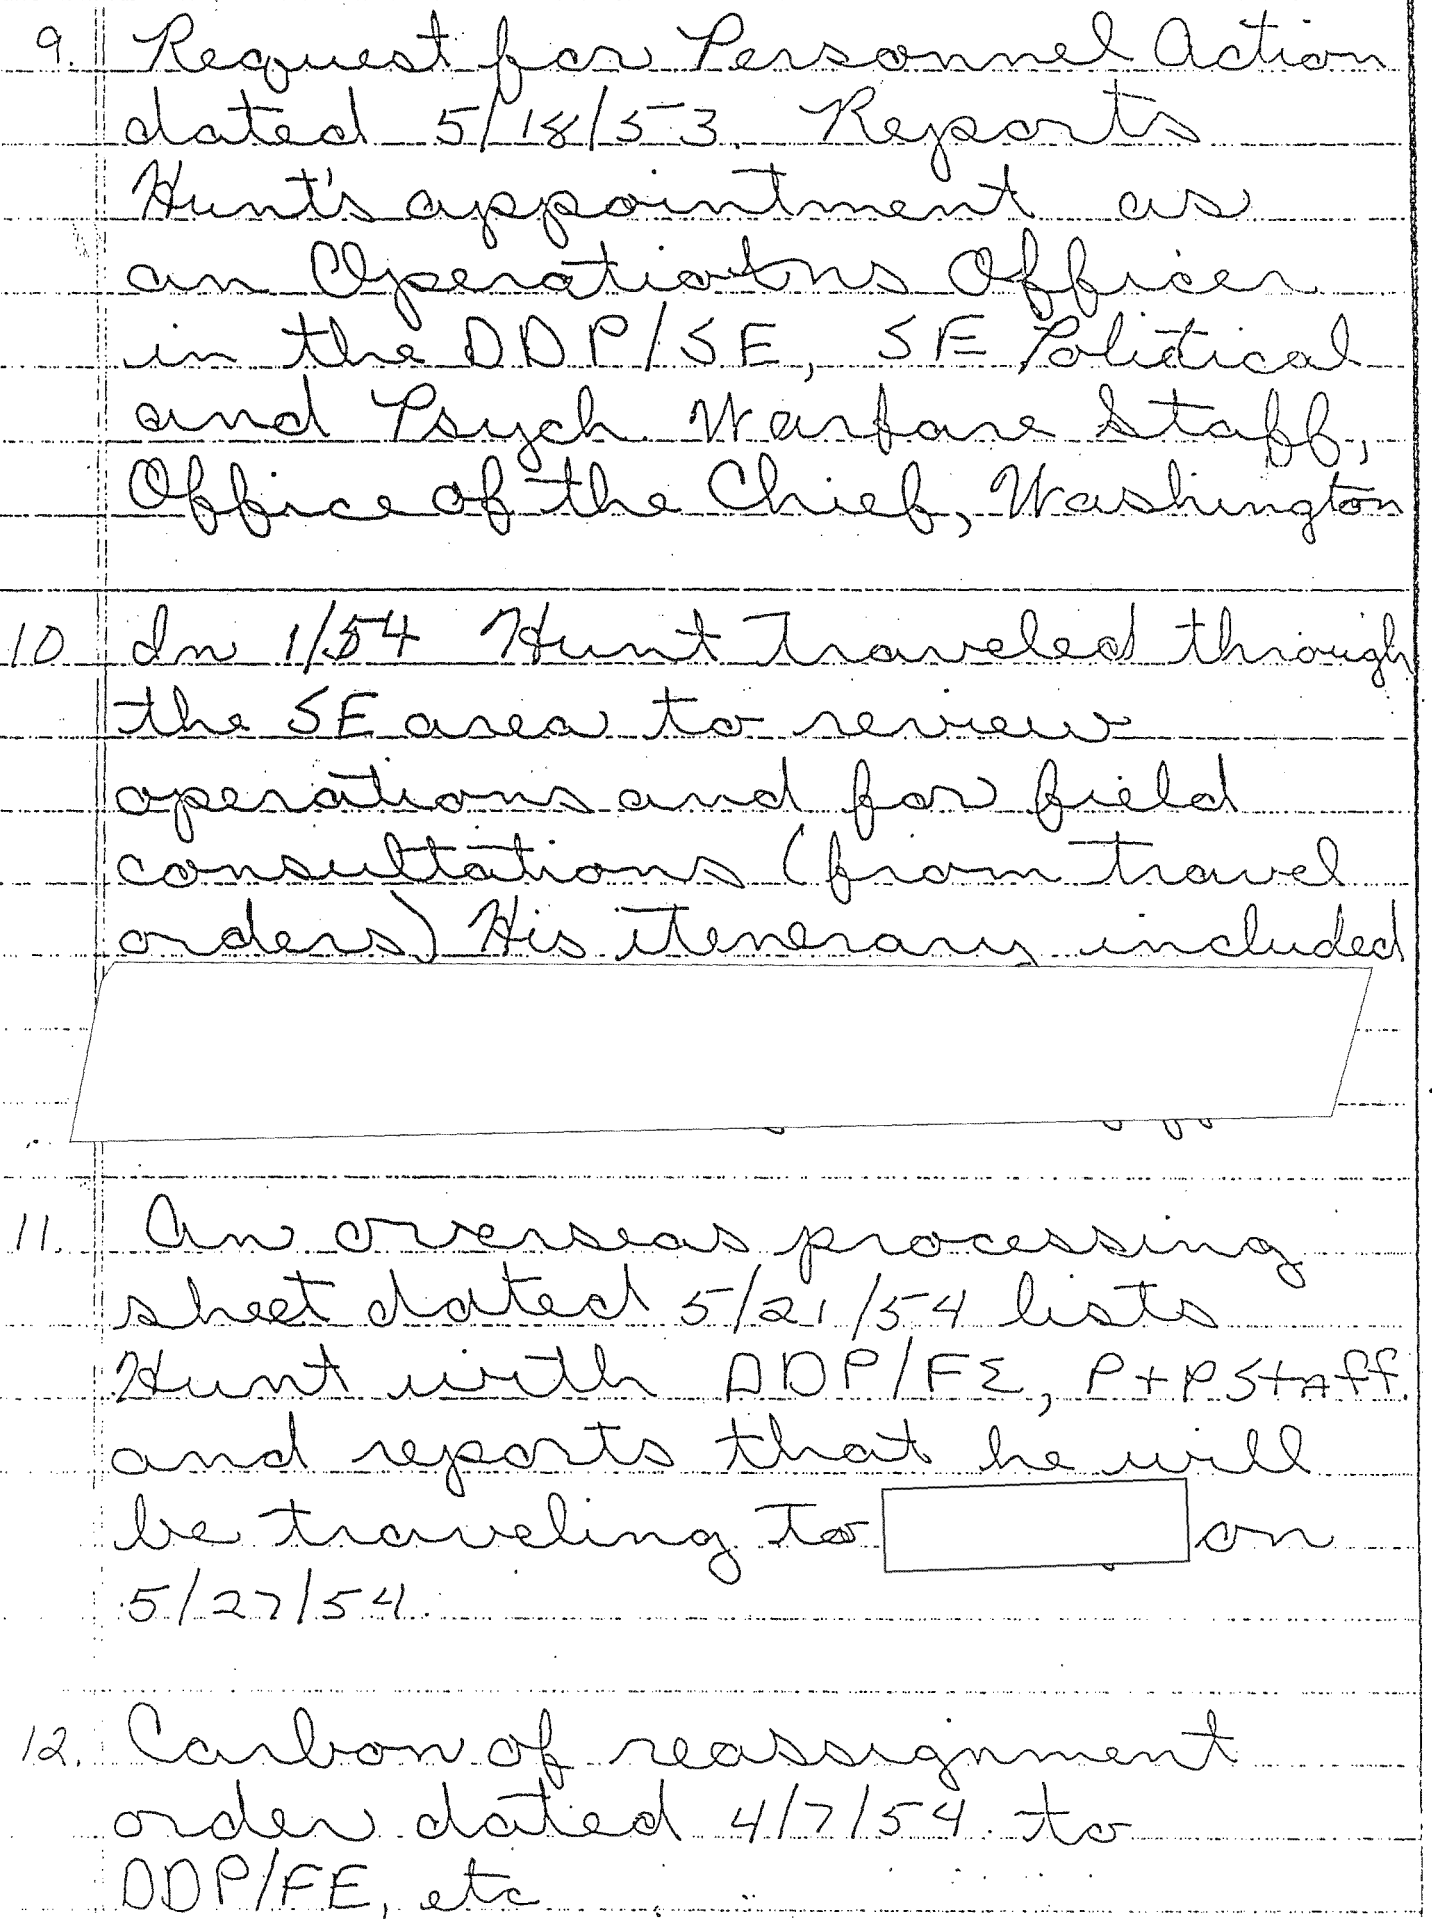 9. Request for Personnel Action
dated 5/18/53. Reports
Hunt's appointment as
an Operations Officer
in the DDP/SE, SE Political
and Psych Warfare Staff,
Office of the Chief, Washington
10 In 1/54 Hunt traveled through
the SE area to review
operations and for field
consultations (from travel
orders) His itenerary included
11. An overseas processing
sheet dated 5/21/54 lists
Hunt with DDP/FE, P+P Staff.
and reports that he will
be traveling to on
5/27/54.
12. Carbon of reassignment
order dated 4/7/54 to
DDP/FE, etc